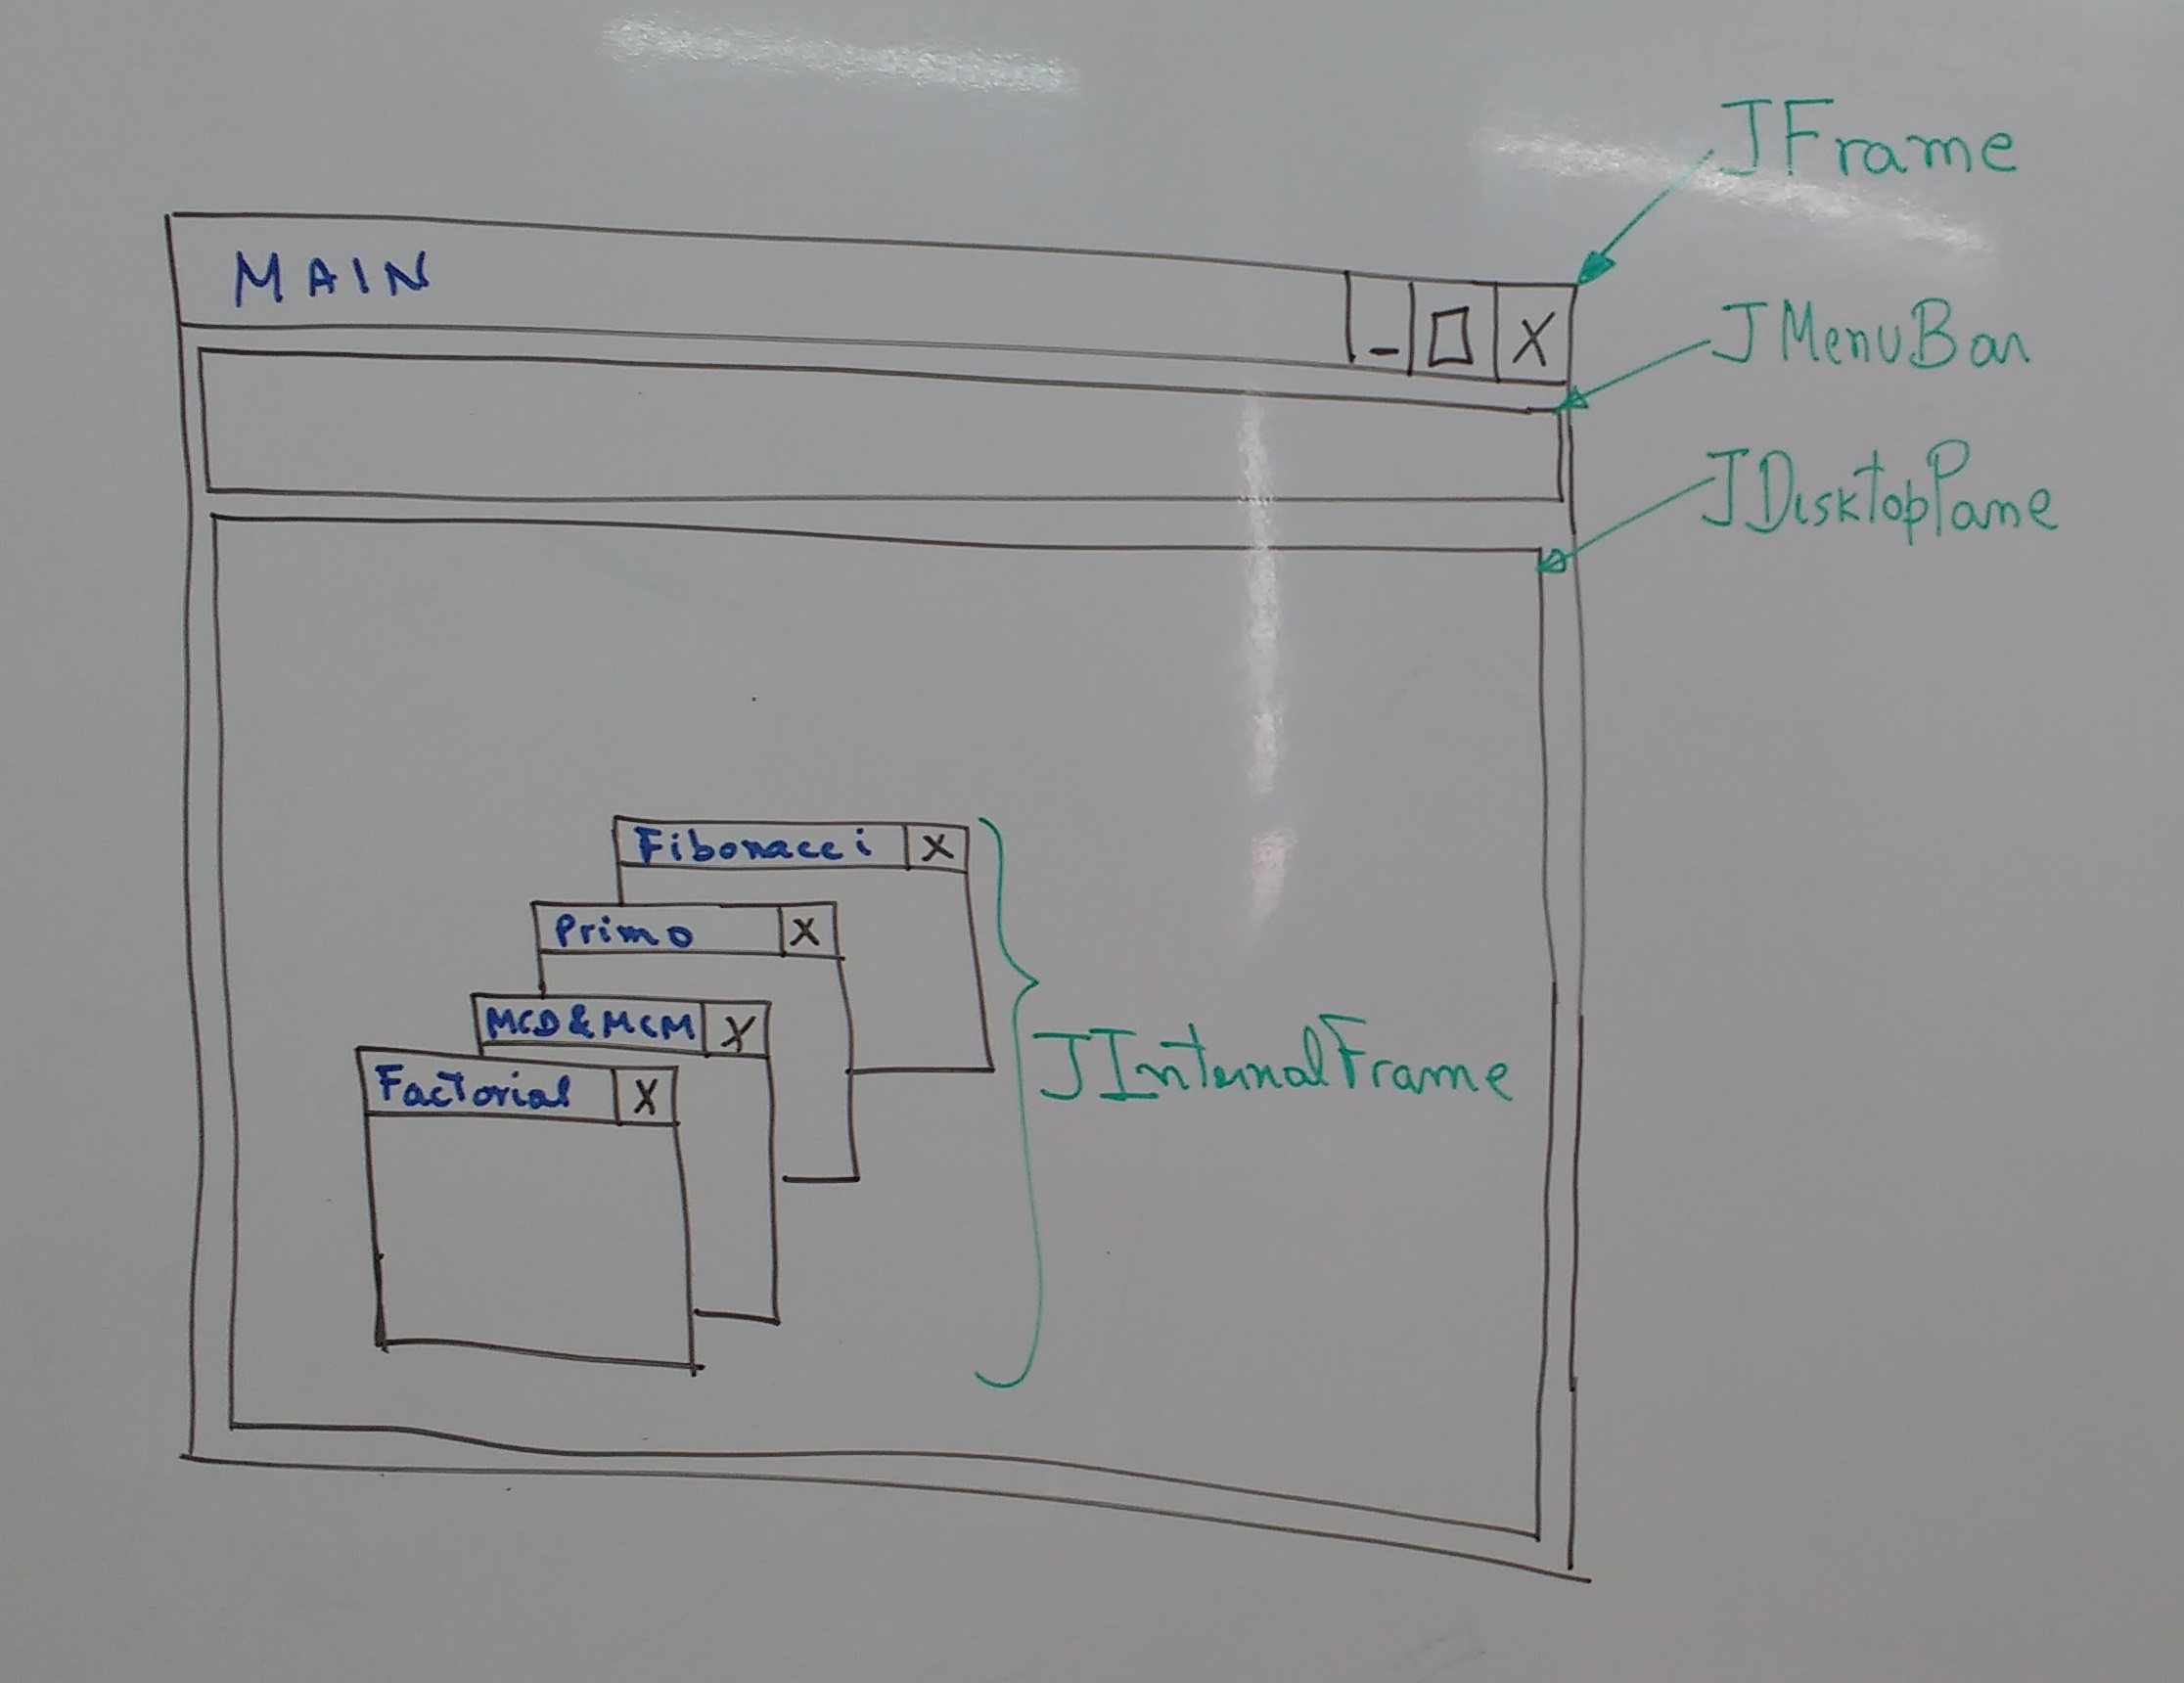 JFrame
MAIN
_ X
JMenuBar
JDisktopPane
Fibonacci X
Primo X
MCD&MCM X
Factorial X
JInternalFrame